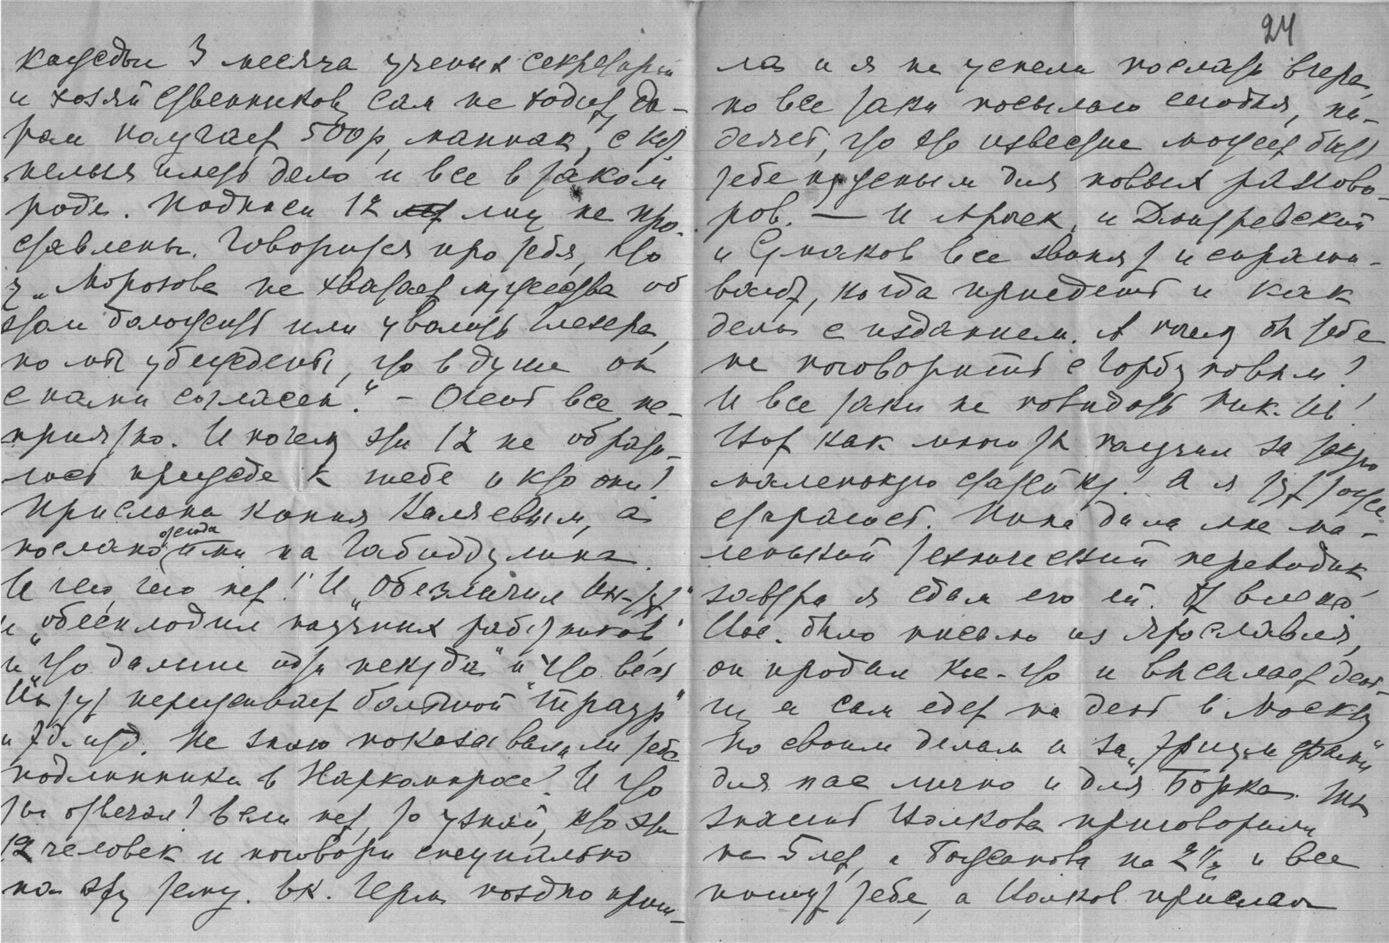 24
кафедры 3 месяца ученых секретарей
и хозяйственников, сам не ходит, да-
ром получает 500р, маниак, с к-й
нельзя иметь дело и все в таком
роде. Подписи 12 лиц не про-
ставлены. Говорится про тебя, что
у „Морозова не хватает мужества об
этом доложить или уволить Шехера,
но мы убеждены, что в душе он
с нами согласен." – Очень все не-
приятно. И почему эти 12 не обрати-
лись прежде к тебе и кто они?
Прислана копия Каляевым, а
послано оттуда ими на Габидулина.
И чего чего нет! И „обезличил Ин-тут"
и „обесплодил научных работников"
и „что дальше идти некуда" и что весь
Ин-тут переживает большой "траур"
и т.д. и т.д. Не знаю показывали ли тебе
подлинники в Наркомпросе? И что
ты отвечал? Если нет то узнай, кто эти
12 человек и поговори специально
на эту тему. Вк. Черн. поздно приш-
ла и я не успела послать вчера,
но все таки посылаю сегодня, на-
деясь, что это известие может быть
тебе нужным для новых разгово-
ров. — И Артек, и Домбровский
и Сумаков все звонят и спраши-
вают, когда приедешь и как
дела с изданием. А почему бы тебе
не поговорить с Горбуновым?
И все таки не повидать Ник. Ив!
Ноф как много ты получил за такую
маленькую статейку! А я тут тоже
старалась. Нина дала мне ма-
ленький технический переводик
завтра я сдам его ей. От
было письмо из Ярославля,
он продал кое-что и высылает день-
ги и сам едет на день в Москву
по своим делам и за
для нас лично и для Борка. Ты
знаешь Волкова приговорили
на 5 лет, а Божанова на 2½ и все
пошут тебе, а Волков прислал